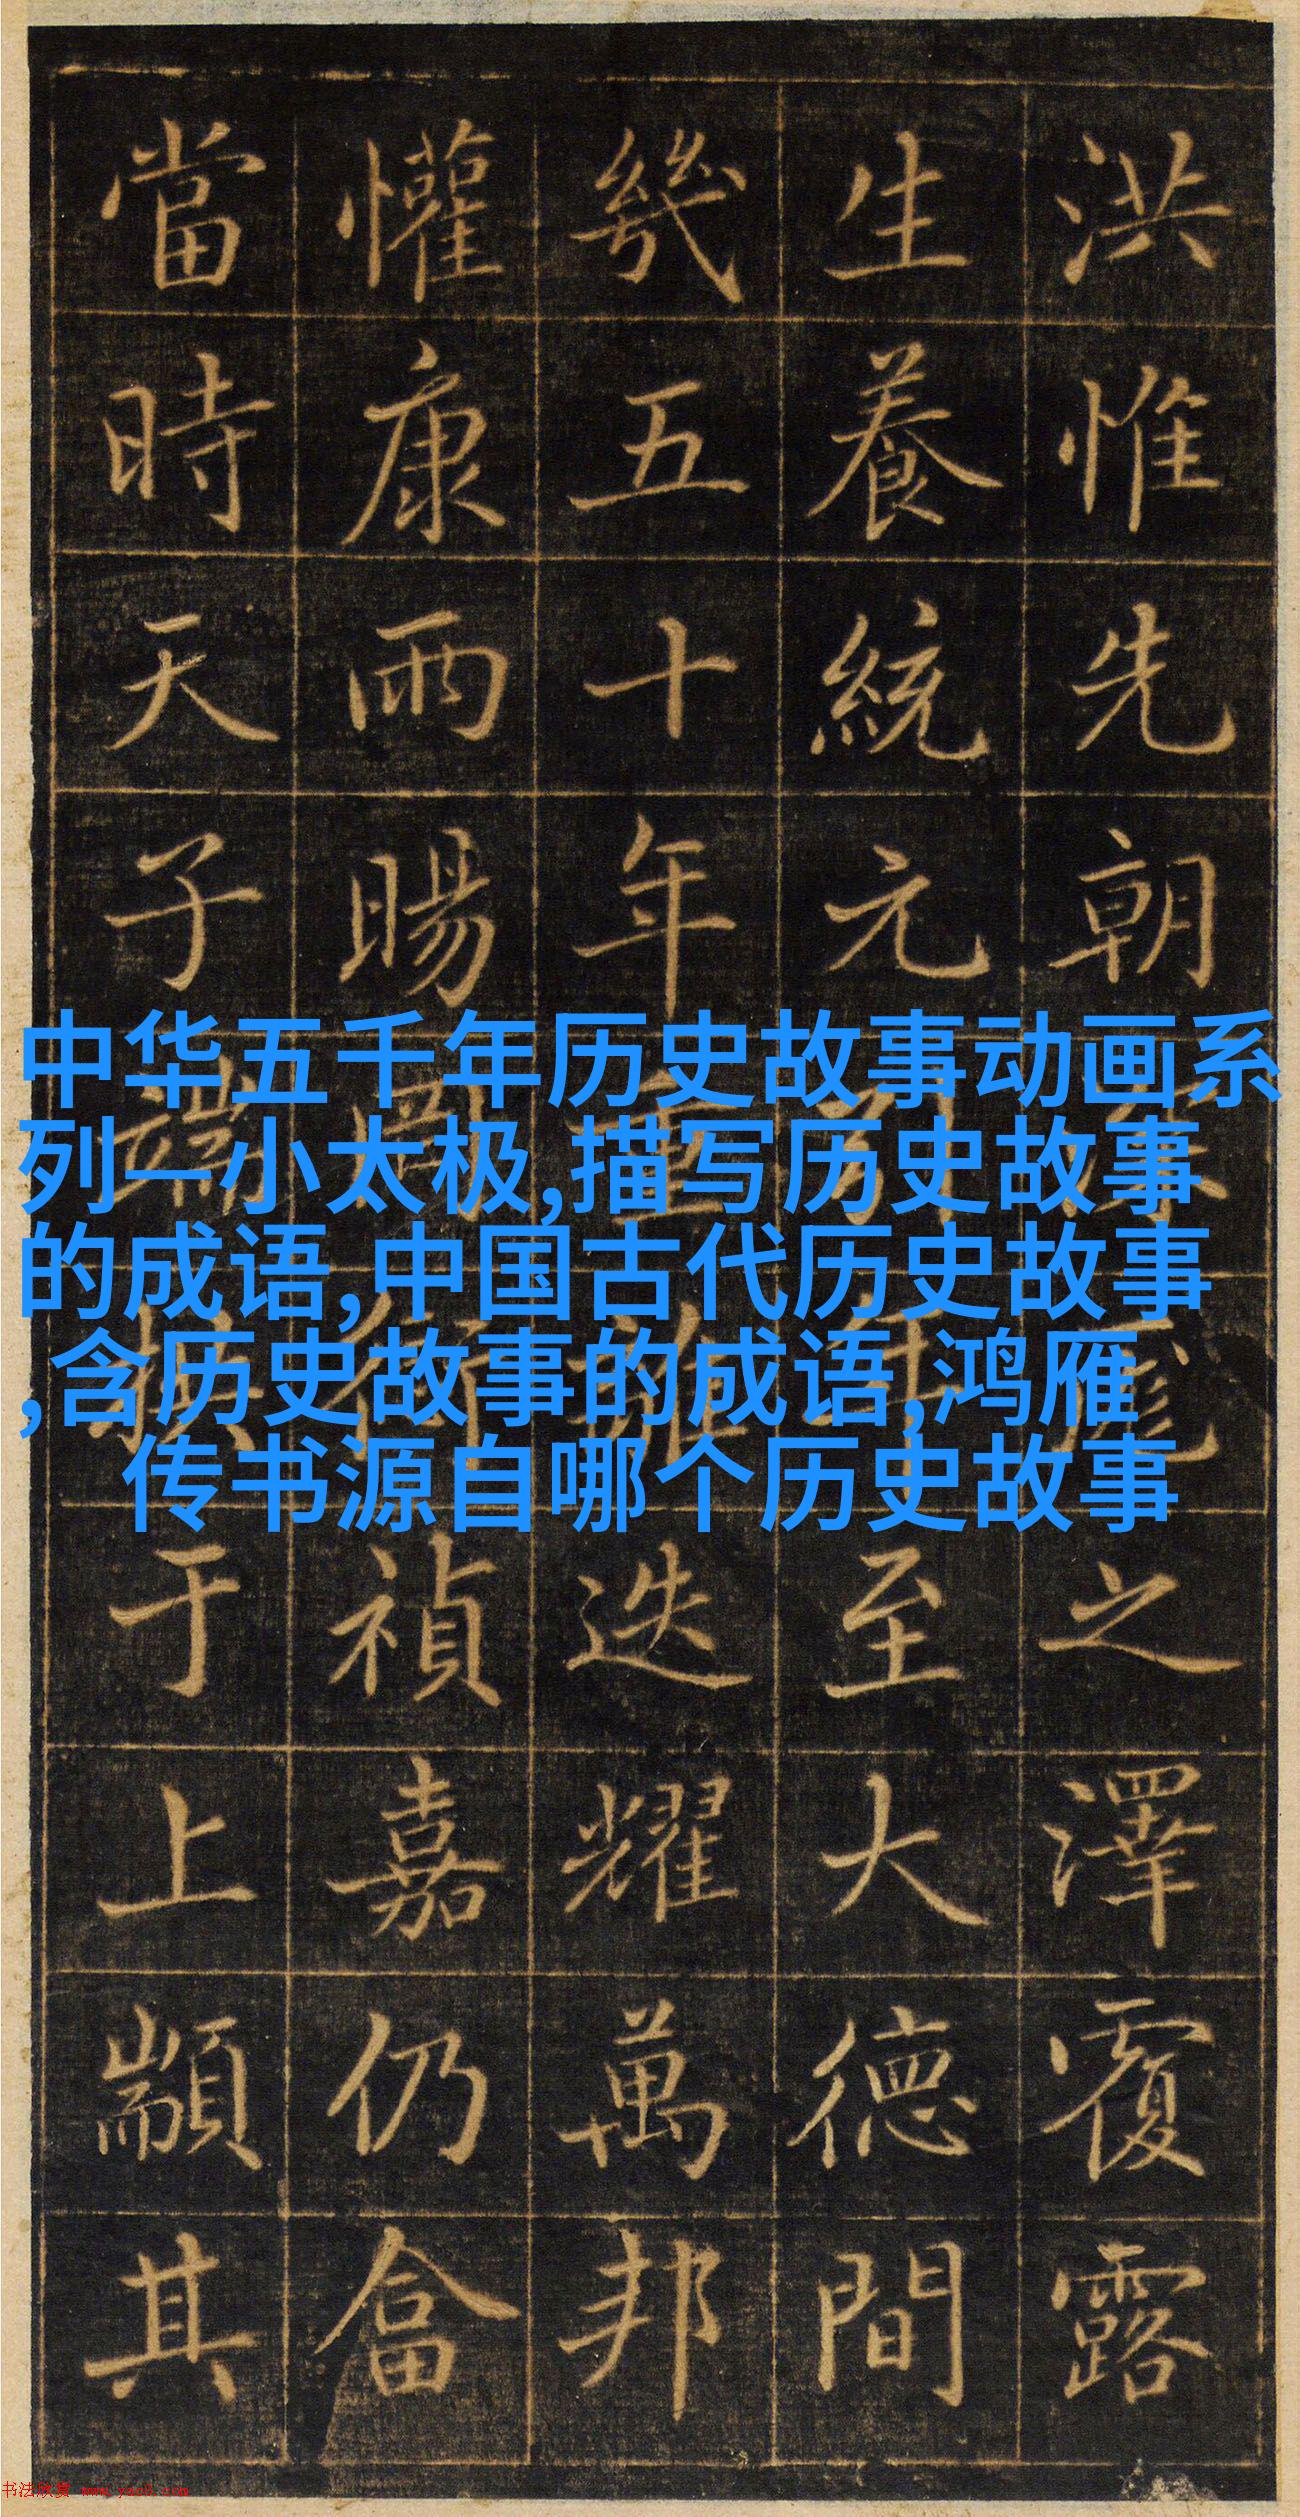 洪惟先朝之澤覆露
生養統元至大德間
幾五十年重離迭耀萬邦
懽康雨暘禎嘉仍畲
當時天子端拱于上顒其
中华五千年历史故事动画系
列一小太极,描写历史故事
的成语,中国古代历史故事
,含历史故事的成语,鸿雁
传书源自哪个历史故事
书法欣赏 www.yac8.com